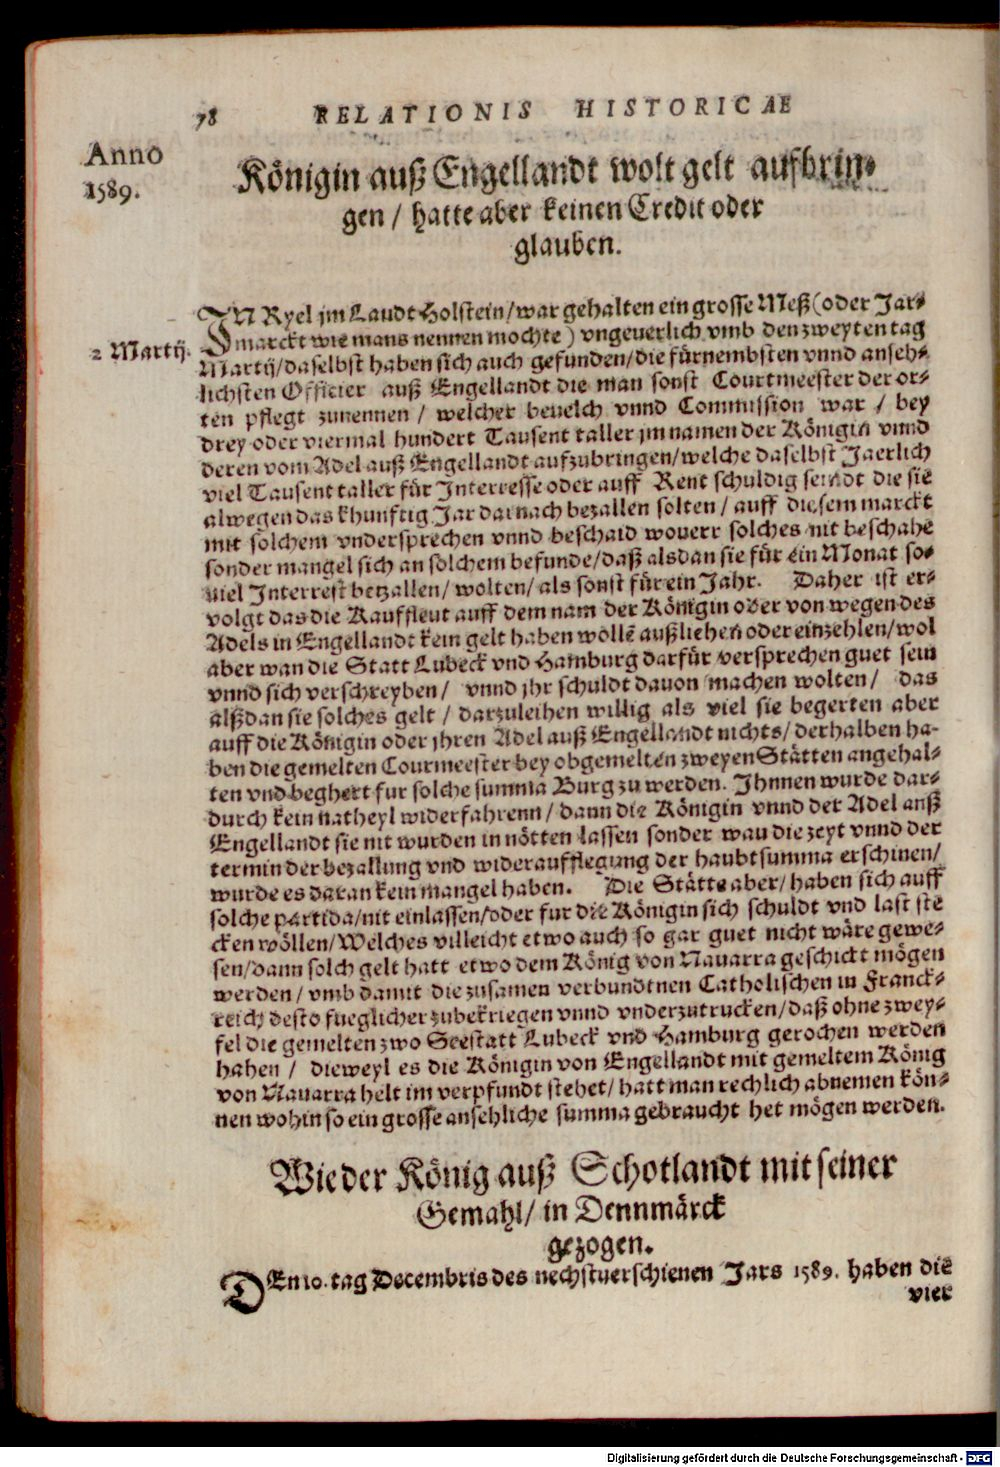 78 RELATIONIS HISTORICAE
Anno
1589.
Königin auß Engellandt wolt gelt aufbrin-
gen / hatte aber keinen Credit oder
glauben.
IN Kyel jm Laudt Holstein/ war gehalten ein grosse Meß (oder Jar-
marckt wie mans nennen mochte) vngeuerlich vmb den zweyten tag
2 Martij.
Martij/ daselbst haben sich auch gefunden/ die fürnembsten vnnd anseh-
lichsten Officier auß Engellandt die man sonst Courtmeester der or-
ten pflegt zunennen / welcher beuelch vnnd Commission war / bey
drey oder viermal hundert Tausent taller jm namen der Königin vnnd
deren vom Adel auß Engellandt aufzubringen/ welche daselbst Jaerlich
viel Tausent taller für Interresse oder auff Rent schuldig seindt die sie
alwegen das khunftig Jar darnach bezallen solten / auff diesem marckt
mit solchem vndersprechen vnnd beschaid wouerr solches nit beschahe
sonder mangel sich an solchem befunde/ daß alsdan sie für ein Monat so-
uiel Interrest betzallen/ wolten/ als sonst für ein Jahr. Daher ist er-
volgt das die Kauffleut auff dem nam der Königin oder von wegen des
Adels in Engellandt kein gelt haben wollē außliehen oder einzehlen/ wol
aber wan die Statt Lubeck vnd Hamburg darfür versprechen guet sein
vnnd sich verschreyben / vnnd jhr schuldt dauon machen wolten / das
alßdan sie solches gelt / darzuleihen willig als viel sie begerten aber
auff die Königin oder jhren Adel auß Engellandt nichts/ derhalben ha-
ben die gemelten Courmeester bey obgemelten zweyen Stätten angehal-
ten vnd beghert fur solche summa Burg zu werden. Ihnnen wurde dar-
durch kein natheyl widerfahrenn / dann die Königin vnnd der Adel anß
Engellandt sie nit wurden in nötten lassen sonder wau die zeyt vnnd der
termin der bezallung vnd widerauffflegung der haubtsumma erschinen/
wurde es daran kein mangel haben. Die Stätte aber/ haben sich auff
solche partida/ nit einlassen/ oder fur die Königin sich schuldt vnd last ste
cken wöllen/ Welches villeicht etwo auch so gar guet nicht wäre gewe-
sen/ dann solch gelt hatt etwo dem König von Nauarra geschickt mögen
werden / vmb damit die zusamen verbundtnen Catholischen in Franck-
reich desto fueglicher zubekriegen vnnd vnderzutrucken/ daß ohne zwey-
fel die gemelten zwo Seestatt Lubeck vnd Hamburg gerochen werden
haben / dieweyl es die Königin von Engellandt mit gemeltem König
von Nauarra helt im verpfundt stehet/ hatt man rechlich abnemen kön-
nen wohin so ein grosse ansehliche summa gebraucht het mögen werden.
Wie der König auß Schotlandt mit seiner
Gemahl/ in Dennmärck
gezogen.
DEn 10. tag Decembris des nechstuerschienen Jars 1589. haben die
vier
Digitalisierung gefördert durch die Deutsche Forschungsgemeinschaft - DFG